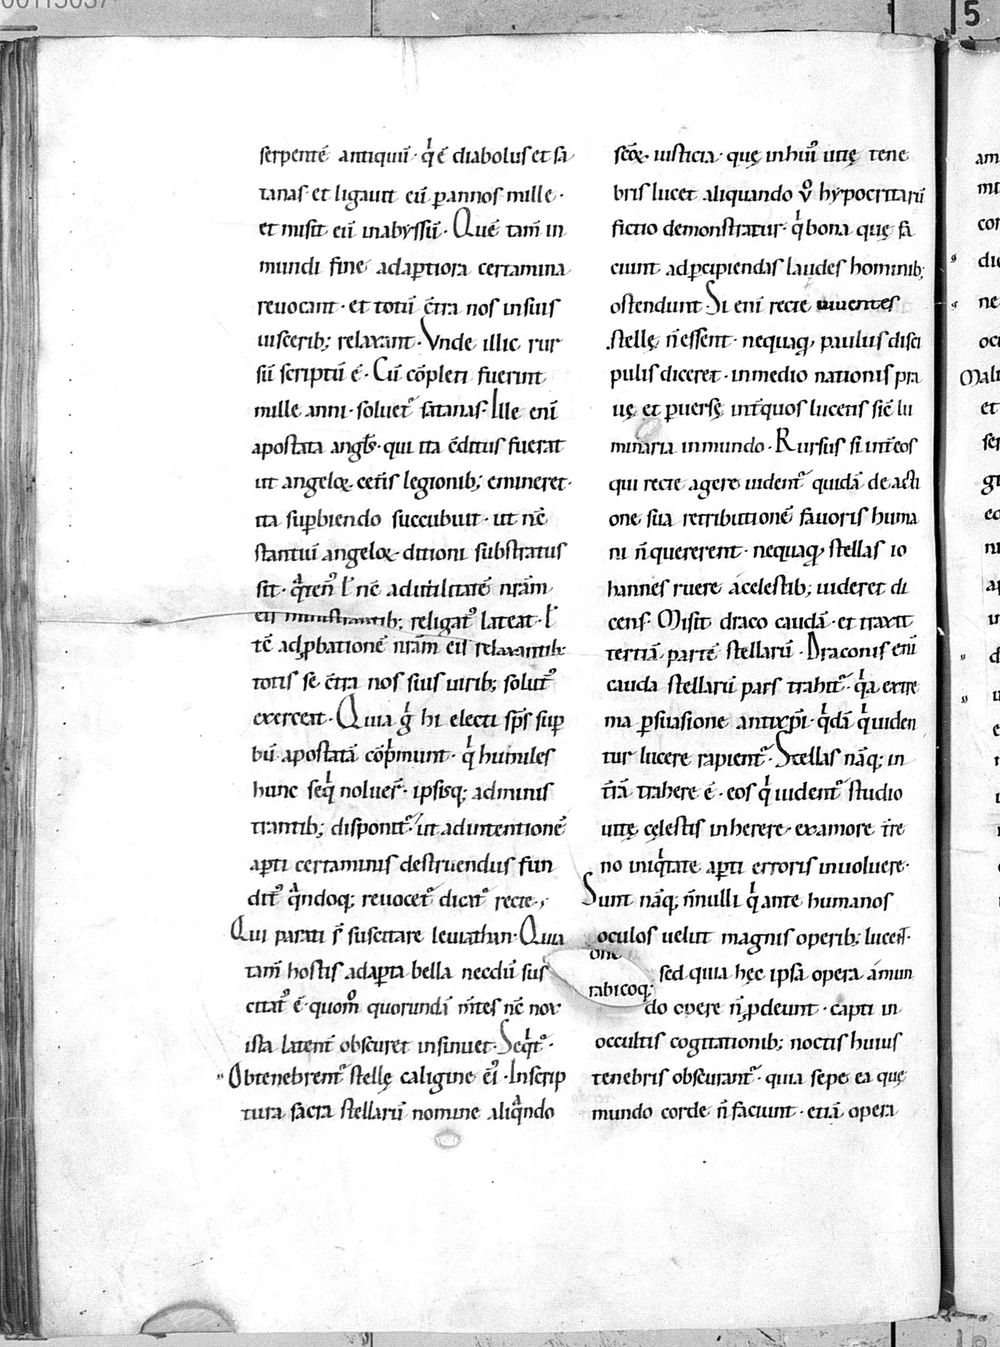 serpentē antiquū· q̇ ē diabolus et sa
tanas· et ligauit eū ꝑ annos mille·
et misit eū in abyssū· Quē tam̄ in
mundi fine ad aptiora certamina
reuocant· et totū c̄tra nos in suis
uiscerib; relaxant· Vnde illic rur
sū scriptū ē· Cū cōpleti fuerint
mille anni· soluet᷑ satanas· Ille enī
apostata angl̄s· qui ita c̄ditus fuerat
ut angeloꝝ cet̄is legionib; emineret·
ita suꝑbiendo succubuit· ut nc̄
stantiū angeloꝝ ditioni substratus
sit· q̄ten᷒ l̓ nc̄ ad utilitatē nr̄am
eis ministrantib; religat᷒ lateat· l̓
tc̄ ad ꝓbationē nr̄am eis relaxantib;
totis se c̄tra nos suis uirib; solut᷒
exerceat· Quia g̊ hi electi sp̄s suꝑ
bū apostatā cōp̄munt· q̇ humiles
hunc seq̇ noluer̄· ipsisq; adminis
trantib; disponit᷑· ut ad intentionē
aꝑti certaminis destruendus fun
dit᷒ q̄ndoq; reuocet᷑ dicat᷑ recte·,
Qui parati s̄ suscitare leuiathan· Quia
tam̄ hostis ad aꝑta bella necdū sus
citat᷒ ē· quom̊ quorundā m̄tes nc̄ nox
ista latent̄ obscuret insinuet· Seq̇t᷑·
Obtenebrent᷑ stellę caligine ei᷒· Inscrip
tura sacra stellarū nomine aliq̄ndo
sc̄oꝝ· iusticia· quę in hui᷒ uitę tene
bris lucet aliquando v̊ hypocritarū
fictio demonstratur· q̇ bona quę fa
ciunt ad ꝑcipiendas laudes hominib;
ostendunt· Si enī recte uiuentes
stellę n̄ essent· nequaq̄ paulus disci
pulis diceret· in medio nationis pra
uę et ꝑuersę int̄ quos lucetis sic̄ lu
minaria in mundo· Rursus si int̄ eos
qui recte agere uident᷑ quidā de acti
one sua retributionē fauoris huma
ni n̄ quererent· nequaq̄ stellas io
hannes ruere a celestib; uideret di
cens· Misit draco caudā· et traxit
tertiā partē stellarū· Draconis enī
cauda stellarū pars trahit᷑· q̇a extre
ma ꝑsuasione antixp̄i· q̇dā q̇ uiden
tur lucere rapient᷑· Stellas nāq; in
t̄rā trahere ē· eos q̇ uident᷑ studio
uitę cęlestis inherere· ex amore t̄re
no iniq̇tate aꝑti erroris inuoluere·
Sunt nāq; n̄nulli q̇ ante humanos
oculos uelut magnis operib; lucent·
sed quia hęc ipsa opera a mun
do corde n̄ ꝓdeunt· capti in
occultis cogitationib; noctis huius
tenebris obscurant᷑· quia sepe ea quę
mundo corde n̄ faciunt· etiā opera